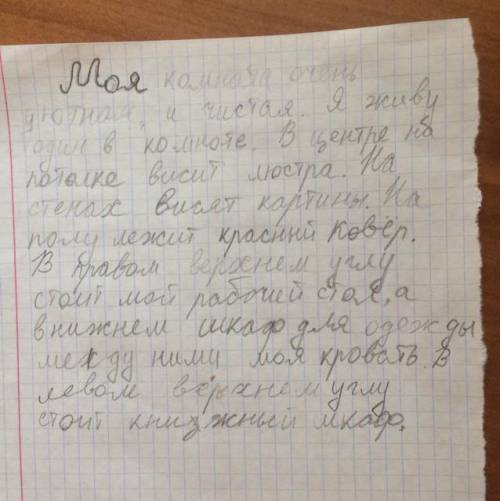 Моя комната очень
уютная, и чистая. Я живу
один в комноте. В центре на
потолке висит люстра. На
стенах висят картины. На
полу лежит красный ковёр.
В правом верхнем углу
стоит мой рабочий стол, а
в нижнем шкаф для одежды
между ними моя кровать. В
левом верхнем углу
стоит книзжный шкаф.